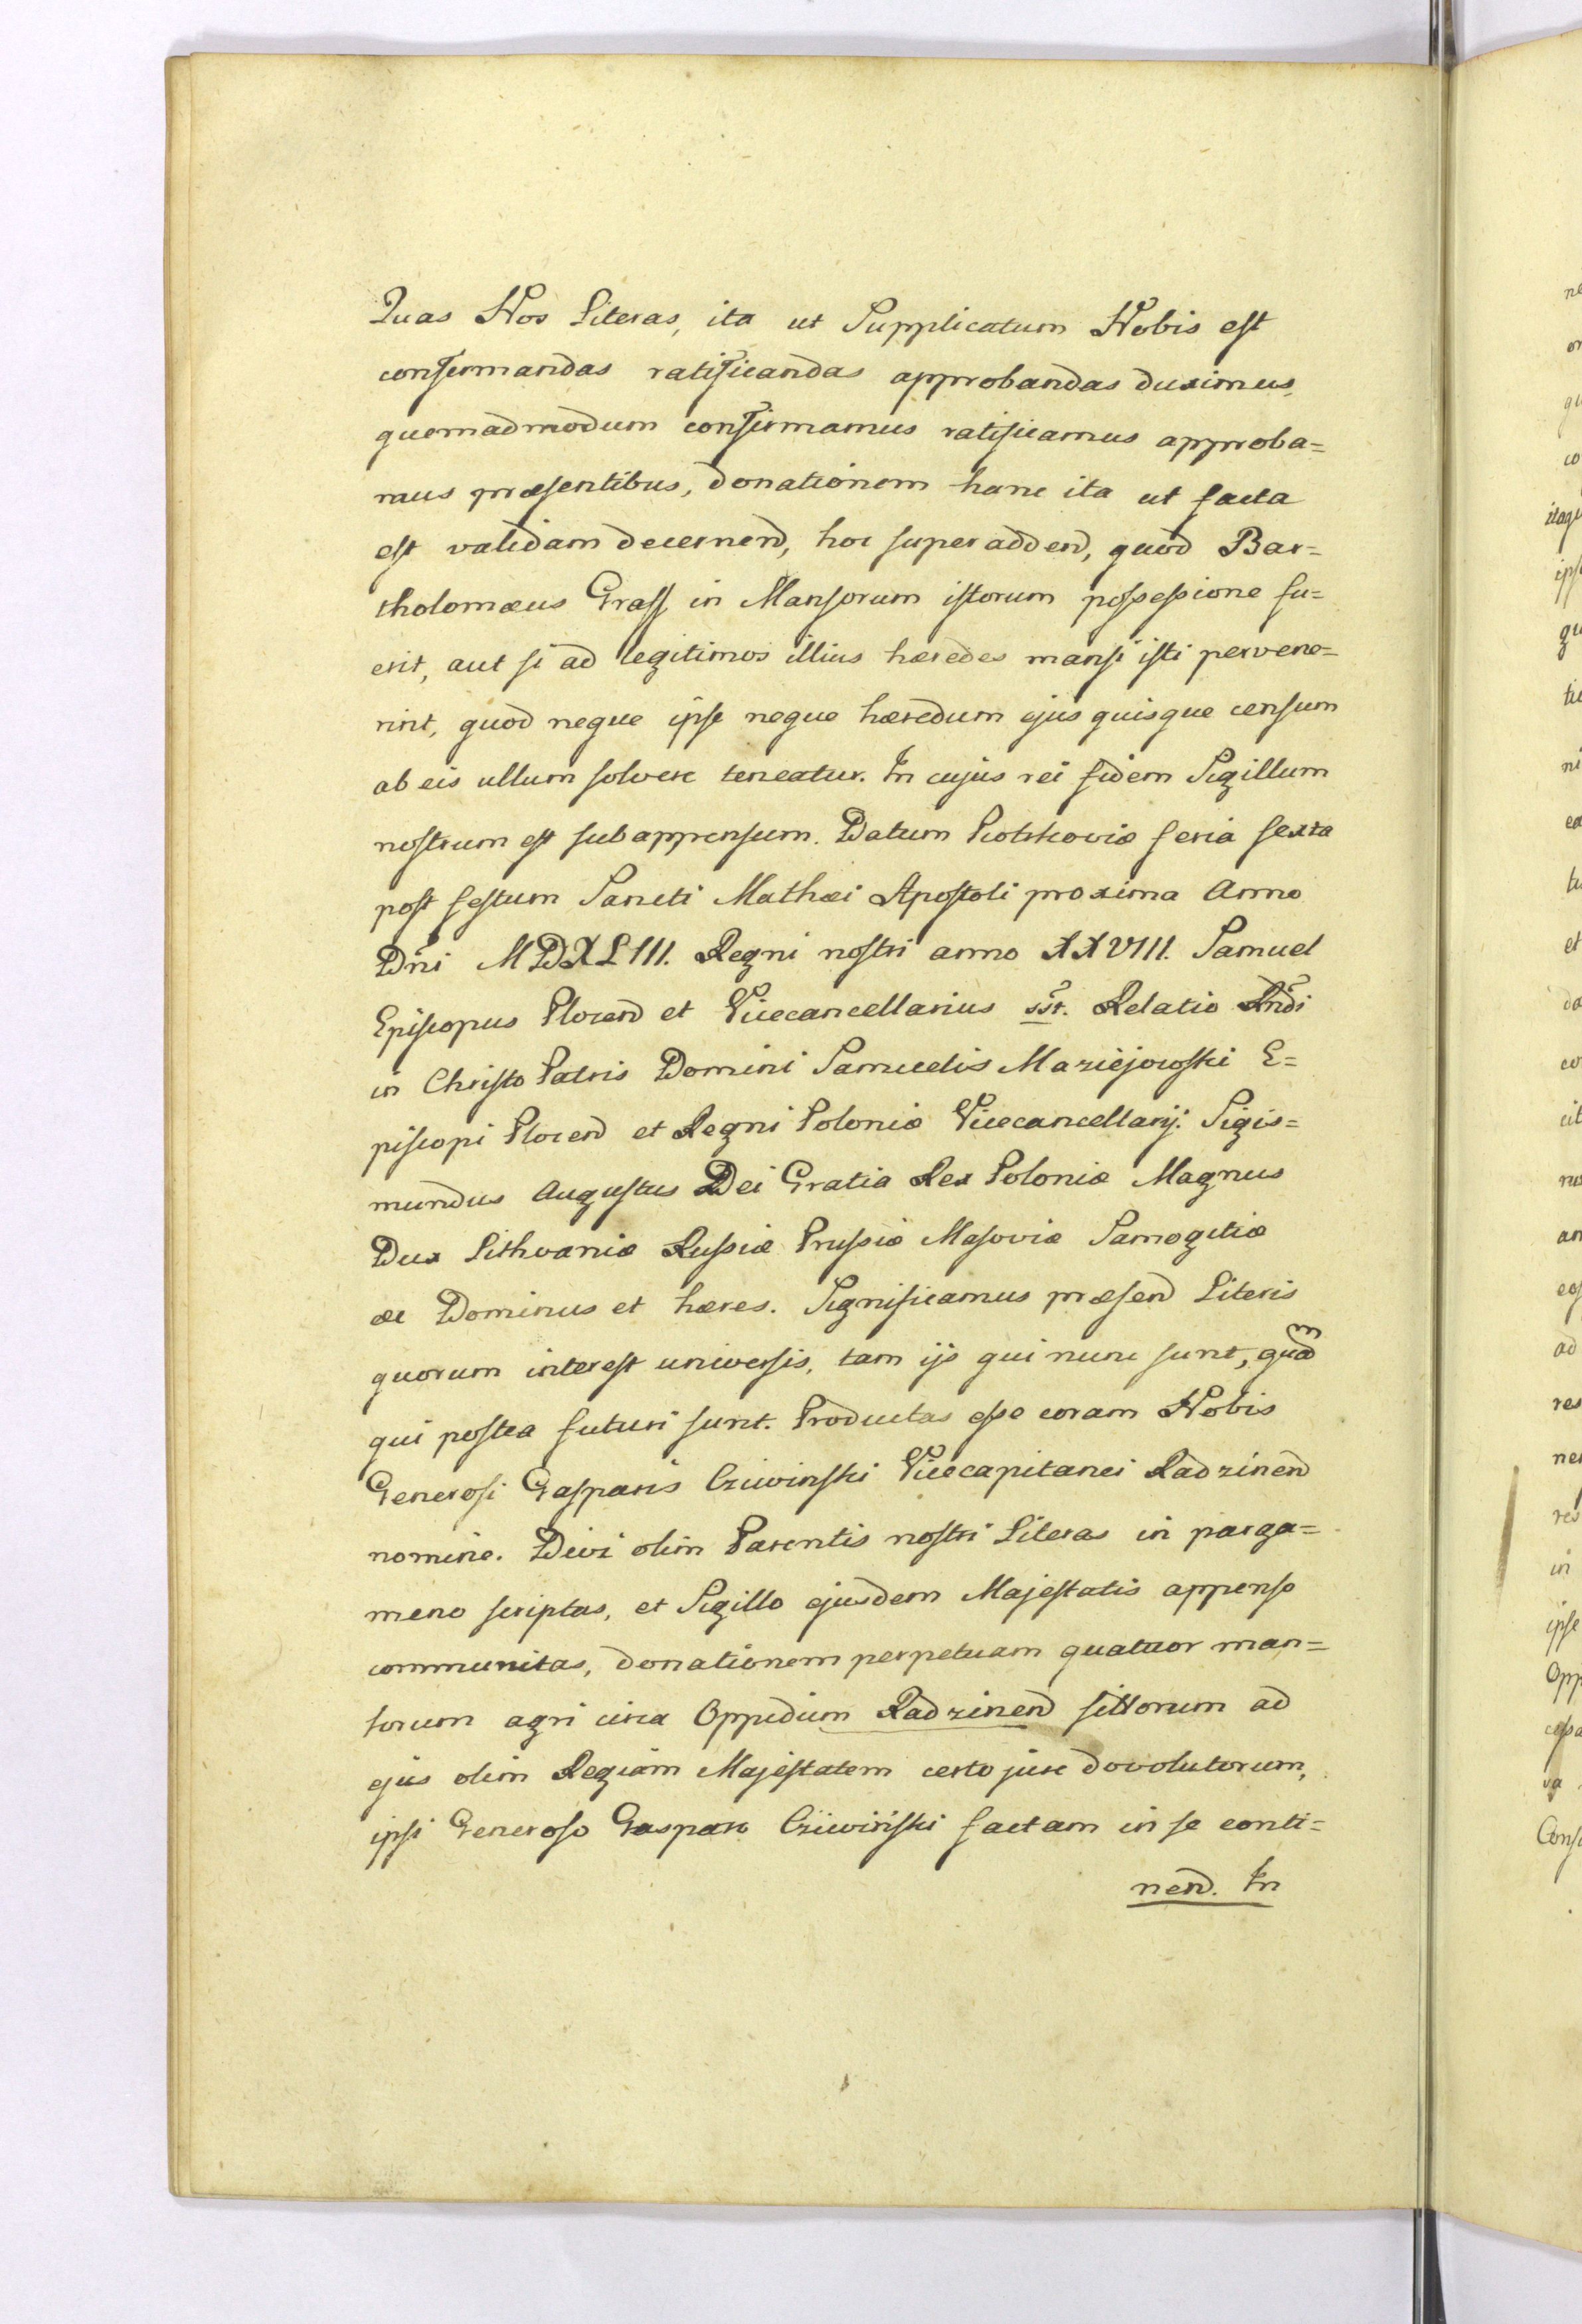 Quas Nos Literas, ita ut Supplicatum Nobis est
confirmandas ratificandas approbandas duximus,
quemadmodum confirmamus ratificamus approba=
mus præsentibus, donationem hanc ita ut facta
est validam decernend, hoc superaddend, quod Bar=
tholomæus Grass in Mansorum istorum possessione fu=
erit, aut si ad legitimos illius hæredes mansi isti pervene=
rint, quod neque ipse neque hæredum ejus quisque censum
ab eis ullum solvere teneatur. In cujus rei fidem Sigillum
nostrum est subappensum. Datum Piotrkoviæ feria sexta
post festum Sancti Mathæi Apostoli proxima Anno
Dni MDXLIII. Regni nostri anno XXVIII. Samuel
Episcopus Plocend et Vicecancellarius sst. Relatio Rndi
in Christo Patris Domini Samuelis Maziejowski E=
piscopi Plocend et Regni Poloniæ Vicecancellarij. Sigis=
mundus Augustus Dei Gratia Rex Poloniæ Magnus
Dux Lithvaniæ Russiæ Prussiæ Masoviæ Samogitiæ
ac Dominus et hæres. Significamus præsend Literis
quorum interest universis, tam ijs qui nunc sunt, quam
qui postea futuri sunt. Productas esse coram Nobis
Generosi Gasparis Cziwinski Vicecapitanei Radzinend
nomine. Divi olim Parentis nostri Literas in parga=
meno scriptas, et Sigillo ejusdem Majestatis appenso
communitas, donationem perpetuam quatuor man=
sorum agri circa Oppidum Radzinend sittorum ad
ejus olim Regiam Majestatem certo jure dovolutorum,
ipsi Generoso Gaspare Cziwinski factam in se conti=
nend. In